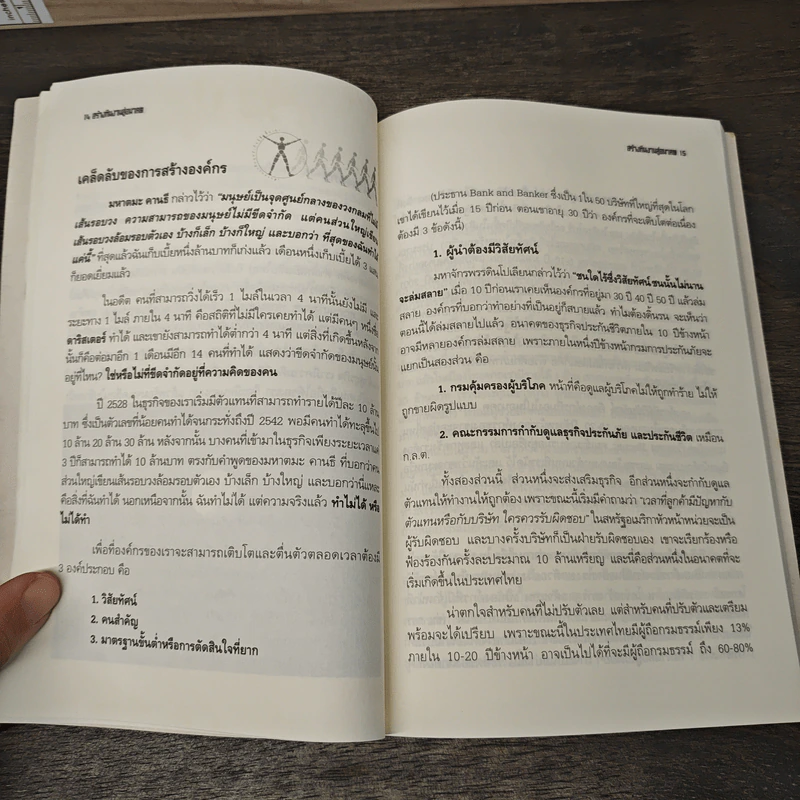 14 สร้างทีมงานสู่อนาคต
เคล็ดลับของการสร้างองค์กร
มหาตมะ คานธี กล่าวไว้ว่า "มนุษย์เป็นจุดศูนย์กลางของวงกลมที่ไม่มี
เส้นรอบวง ความสามารถของมนุษย์ไม่มีขีดจำกัด แต่คนส่วนใหญ่เขียน
เส้นรอบวงล้อมรอบตัวเอง บ้างก็เล็ก บ้างก็ใหญ่ และบอกว่า ที่สุดของฉันทำได้
แค่นี้" ที่สุดแล้วฉันเก็บเบี้ยหนึ่งล้านบาทก็เก่งแล้ว เดือนหนึ่งเก็บเบี้ยได้ 3
ก็ยอดเยี่ยมแล้ว
ในอดีต คนที่สามารถวิ่งได้เร็ว 1 ไมล์ในเวลา 4 นาทีนั้นยังไม่มี
ระยะทาง 1 ไมล์ ภายใน 4 นาที คือสถิติที่ไม่มีใครเคยทำได้ แต่มีคนๆ หนึ่งชื่อ
ดาริสเตอร์ ทำได้ และเขายังสามารถทำได้ต่ำกว่า 4 นาที แต่สิ่งที่เกิดขึ้นหลังจาก
นั้นก็คือต่อมาอีก 1 เดือนมีอีก 14 คนที่ทำได้ แสดงว่าขีดจำกัดของมนุษย์นั้น
อยู่ที่ไหน? ใช่หรือไม่ที่ขีดจำกัดอยู่ที่ความคิดของคน
ปี 2528 ในธุรกิจของเราเริ่มมีตัวแทนที่สามารถทำรายได้ปีละ 10 ล้าน
บาท ซึ่งเป็นตัวเลขที่น้อยคนทำได้จนกระทั่งถึงปี 2542 พอมีคนทำได้ทะลุขึ้นไป
10 ล้าน 20 ล้าน 30 ล้าน หลังจากนั้น บางคนที่เข้ามาในธุรกิจเพียงระยะเวลาแค่
3 ปีก็สามารถทำได้ 10 ล้านบาท ตรงกับคำพูดของมหาตมะ คานธี ที่บอกว่าคน
ส่วนใหญ่เขียนเส้นรอบวงล้อมรอบตัวเอง บ้างเล็ก บ้างใหญ่ และบอกว่านี่แหละ
คือสิ่งที่ฉันทำได้ นอกเหนือจากนั้น ฉันทำไม่ได้ แต่ความจริงแล้ว ทำไม่ได้ หรือ
ไม่ได้ทำ
เพื่อที่องค์กรของเราจะสามารถเติบโตและตื่นตัวตลอดเวลาต้องมี
3 องค์ประกอบ คือ
1. วิสัยทัศน์
2. คนสำคัญ
3. มาตรฐานขั้นต่ำหรือการตัดสินใจที่ยาก
สร้างทีมงานสู่อนาคต 15
(ประธาน Bank and Banker ซึ่งเป็น 1ใน 50 บริษัทที่ใหญ่ที่สุดในโลก
เขาได้เขียนไว้เมื่อ 15 ปีก่อน ตอนเขาอายุ 30 ปีว่า องค์กรที่จะเติบโตต่อเนื่อง
ต้องมี 3 ข้อดังนี้)
1. ผู้นำต้องมีวิสัยทัศน์
มหาจักรพรรดินโปเลียนกล่าวไว้ว่า "ชนใดไร้ซึ่งวิสัยทัศน์ ชนนั้นไม่นาน
จะล่มสลาย" เมื่อ 10 ปีก่อนเราเคยเห็นองค์กรที่อยู่มา 30 ปี 40 ปี 50 ปี แล้วล่ม
สลาย องค์กรที่บอกว่าทำอย่างที่เป็นอยู่ก็สบายแล้ว ทำไมต้องดิ้นรน จะเห็นว่า
ตอนนี้ได้ล่มสลายไปแล้ว อนาคตของธุรกิจประกันชีวิตภายใน 10 ปีข้างหน้า
อาจมีหลายองค์กรล่มสลาย เพราะภายในหนึ่งปีข้างหน้ากรมการประกันภัยจะ
แยกเป็นสองส่วน คือ
1. กรมคุ้มครองผู้บริโภค หน้าที่คือดูแลผู้บริโภคไม่ให้ถูกทำร้าย ไม่ให้
ถูกขายผิดรูปแบบ
2. คณะกรรมการกำกับดูแลธุรกิจประกันภัย และประกันชีวิต เหมือน
ก.ล.ต.
ทั้งสองส่วนนี้ ส่วนหนึ่งจะส่งเสริมธุรกิจ อีกส่วนหนึ่งจะกำกับดูแล
ตัวแทนให้ทำงานให้ถูกต้อง เพราะขณะนี้เริ่มมีคำถามว่า "เวลาที่ลูกค้ามีปัญหากับ
ตัวแทนหรือกับบริษัท ใครควรรับผิดชอบ" ในสหรัฐอเมริกาหัวหน้าหน่วยจะเป็น
ผู้รับผิดชอบ และบางครั้งบริษัทก็เป็นฝ่ายรับผิดชอบเอง เขาจะเรียกร้องหรือ
ฟ้องร้องกันครั้งละประมาณ 10 ล้านเหรียญ และนี่คือส่วนหนึ่งในอนาคตที่จะ
เริ่มเกิดขึ้นในประเทศไทย
น่าตกใจสำหรับคนที่ไม่ปรับตัวเลย แต่สำหรับคนที่ปรับตัวและเตรียม
พร้อมจะได้เปรียบ เพราะขณะนี้ในประเทศไทยมีผู้ถือกรมธรรม์เพียง 13%
ภายใน 10-20 ปีข้างหน้า อาจเป็นไปได้ที่จะมีผู้ถือกรมธรรม์ ถึง 60-80%